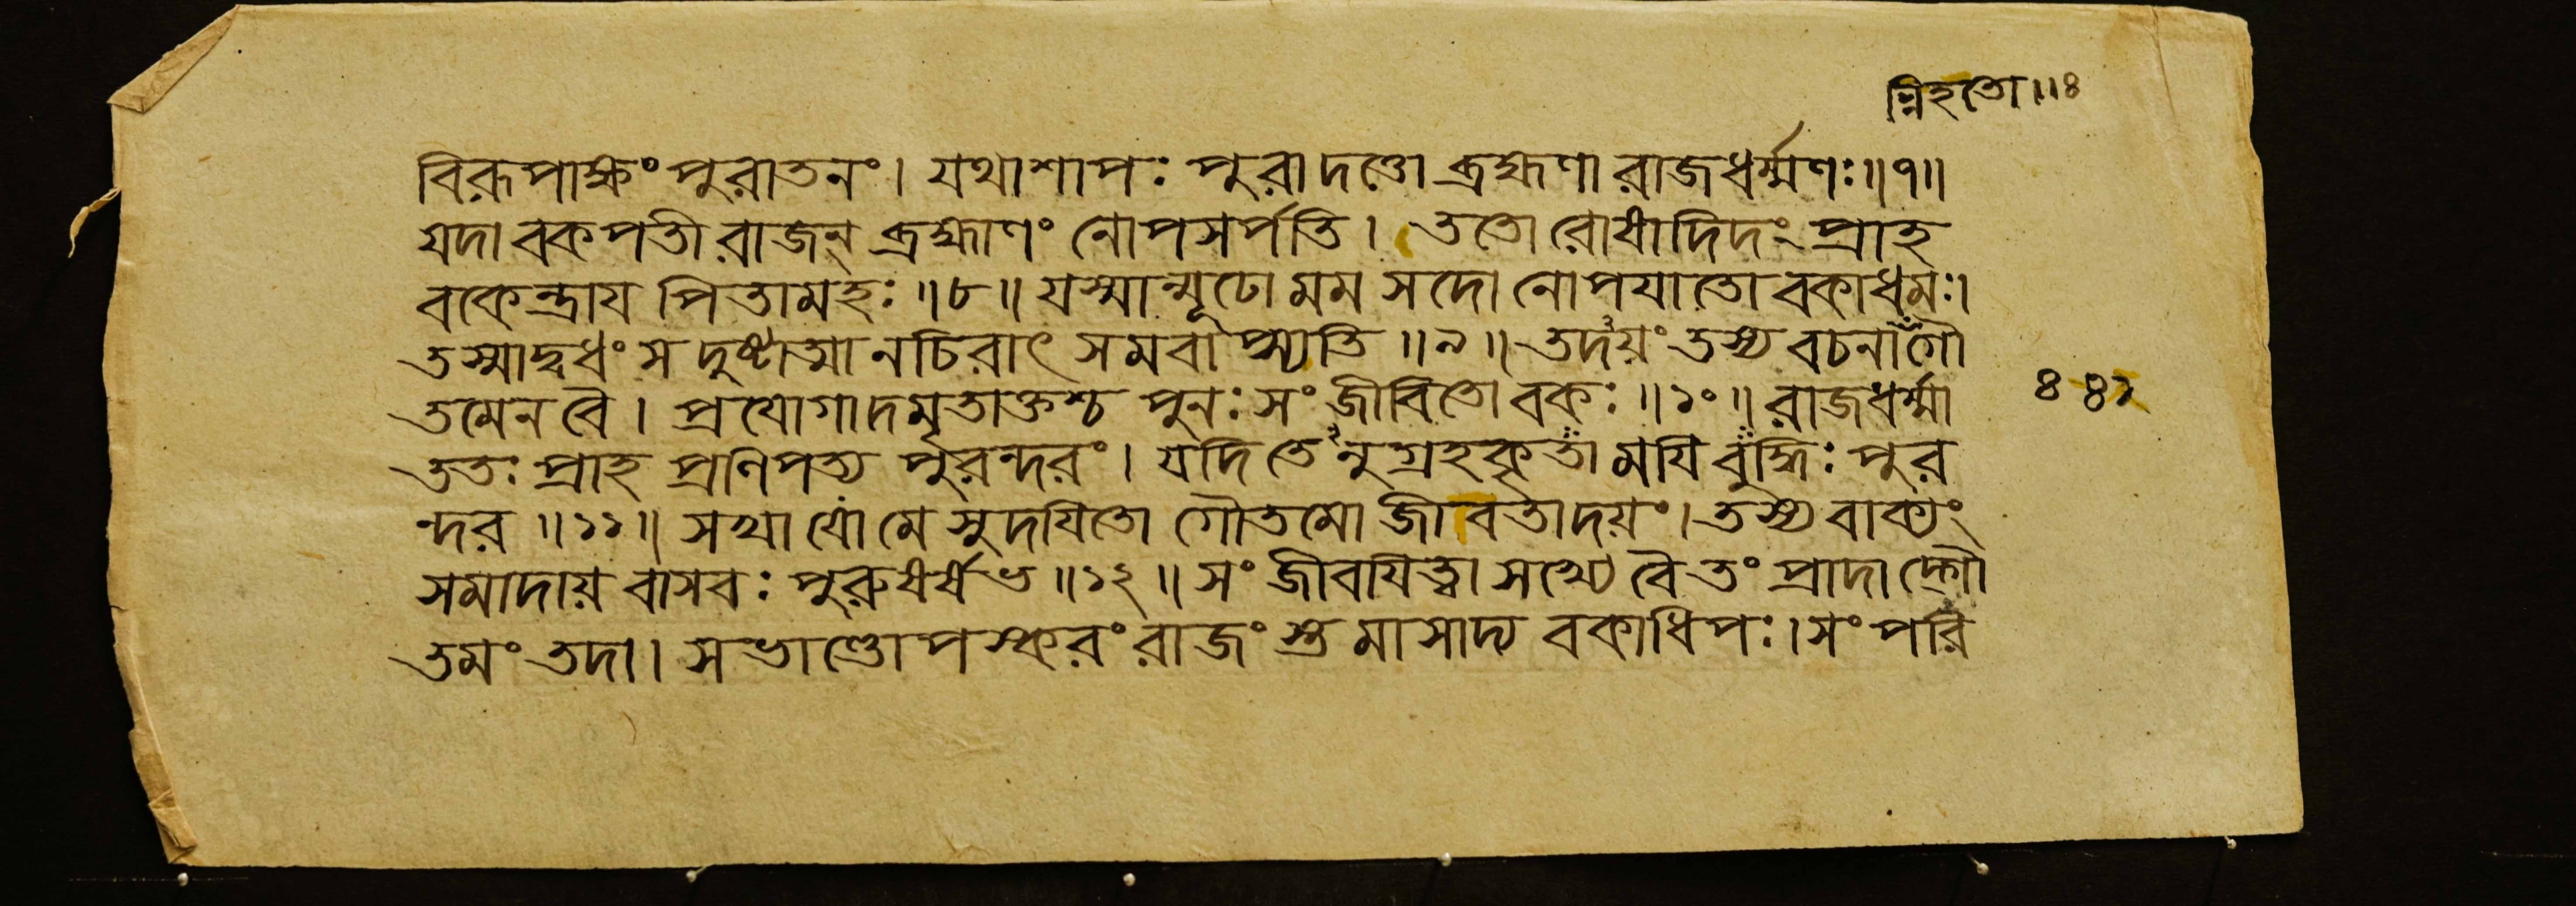 ন্নিহতো॥৪
বিরূপাক্ষং পুরাতনং। যথাশাপঃ পুরাদত্তো ব্রহ্মণা রাজধর্ম্মণঃ॥৭॥
যদা বকপতী রাজন্ ব্রহ্মাণং নোপসর্পতি। ততো রোষাদিদং প্রাহ
বকেন্দ্রায পিতামহঃ॥৮॥ যস্মান্মূঢো মম সদো নোপযাতো বকাধমঃ।
তস্মাদ্বধং স দুষ্টাত্মা নচিরাৎ সমবাপ্স্যতি॥৯॥ তদয়ং তস্য বচনাৎ গৌ
তমেন বৈ। প্রযোগাদমৃতাক্তশ্চ পুনঃ সং জীবিতো বকঃ॥১০॥ রাজধর্ম্মা
৪৪২
ততঃ প্রাহ প্রণিপত্য পুরন্দরং। যদি তেনুগ্রহকৃতা মযি বুদ্ধিঃ পুর
ন্দর॥১১॥ সখাযং মে সুদযিতো গৌতমো জীবতাদয়ং। তস্য বাক্যং
সমাদায় বাসবঃ পুরুষর্ষভ॥১২॥ সং জীবযিত্বা সখ্যে বৈ তং প্রাদাদ্গৌ
তমং তদা। সভাণ্ডোপস্করং রাজং স্তমাসাদ্য বকাধিপঃ। সং পরি